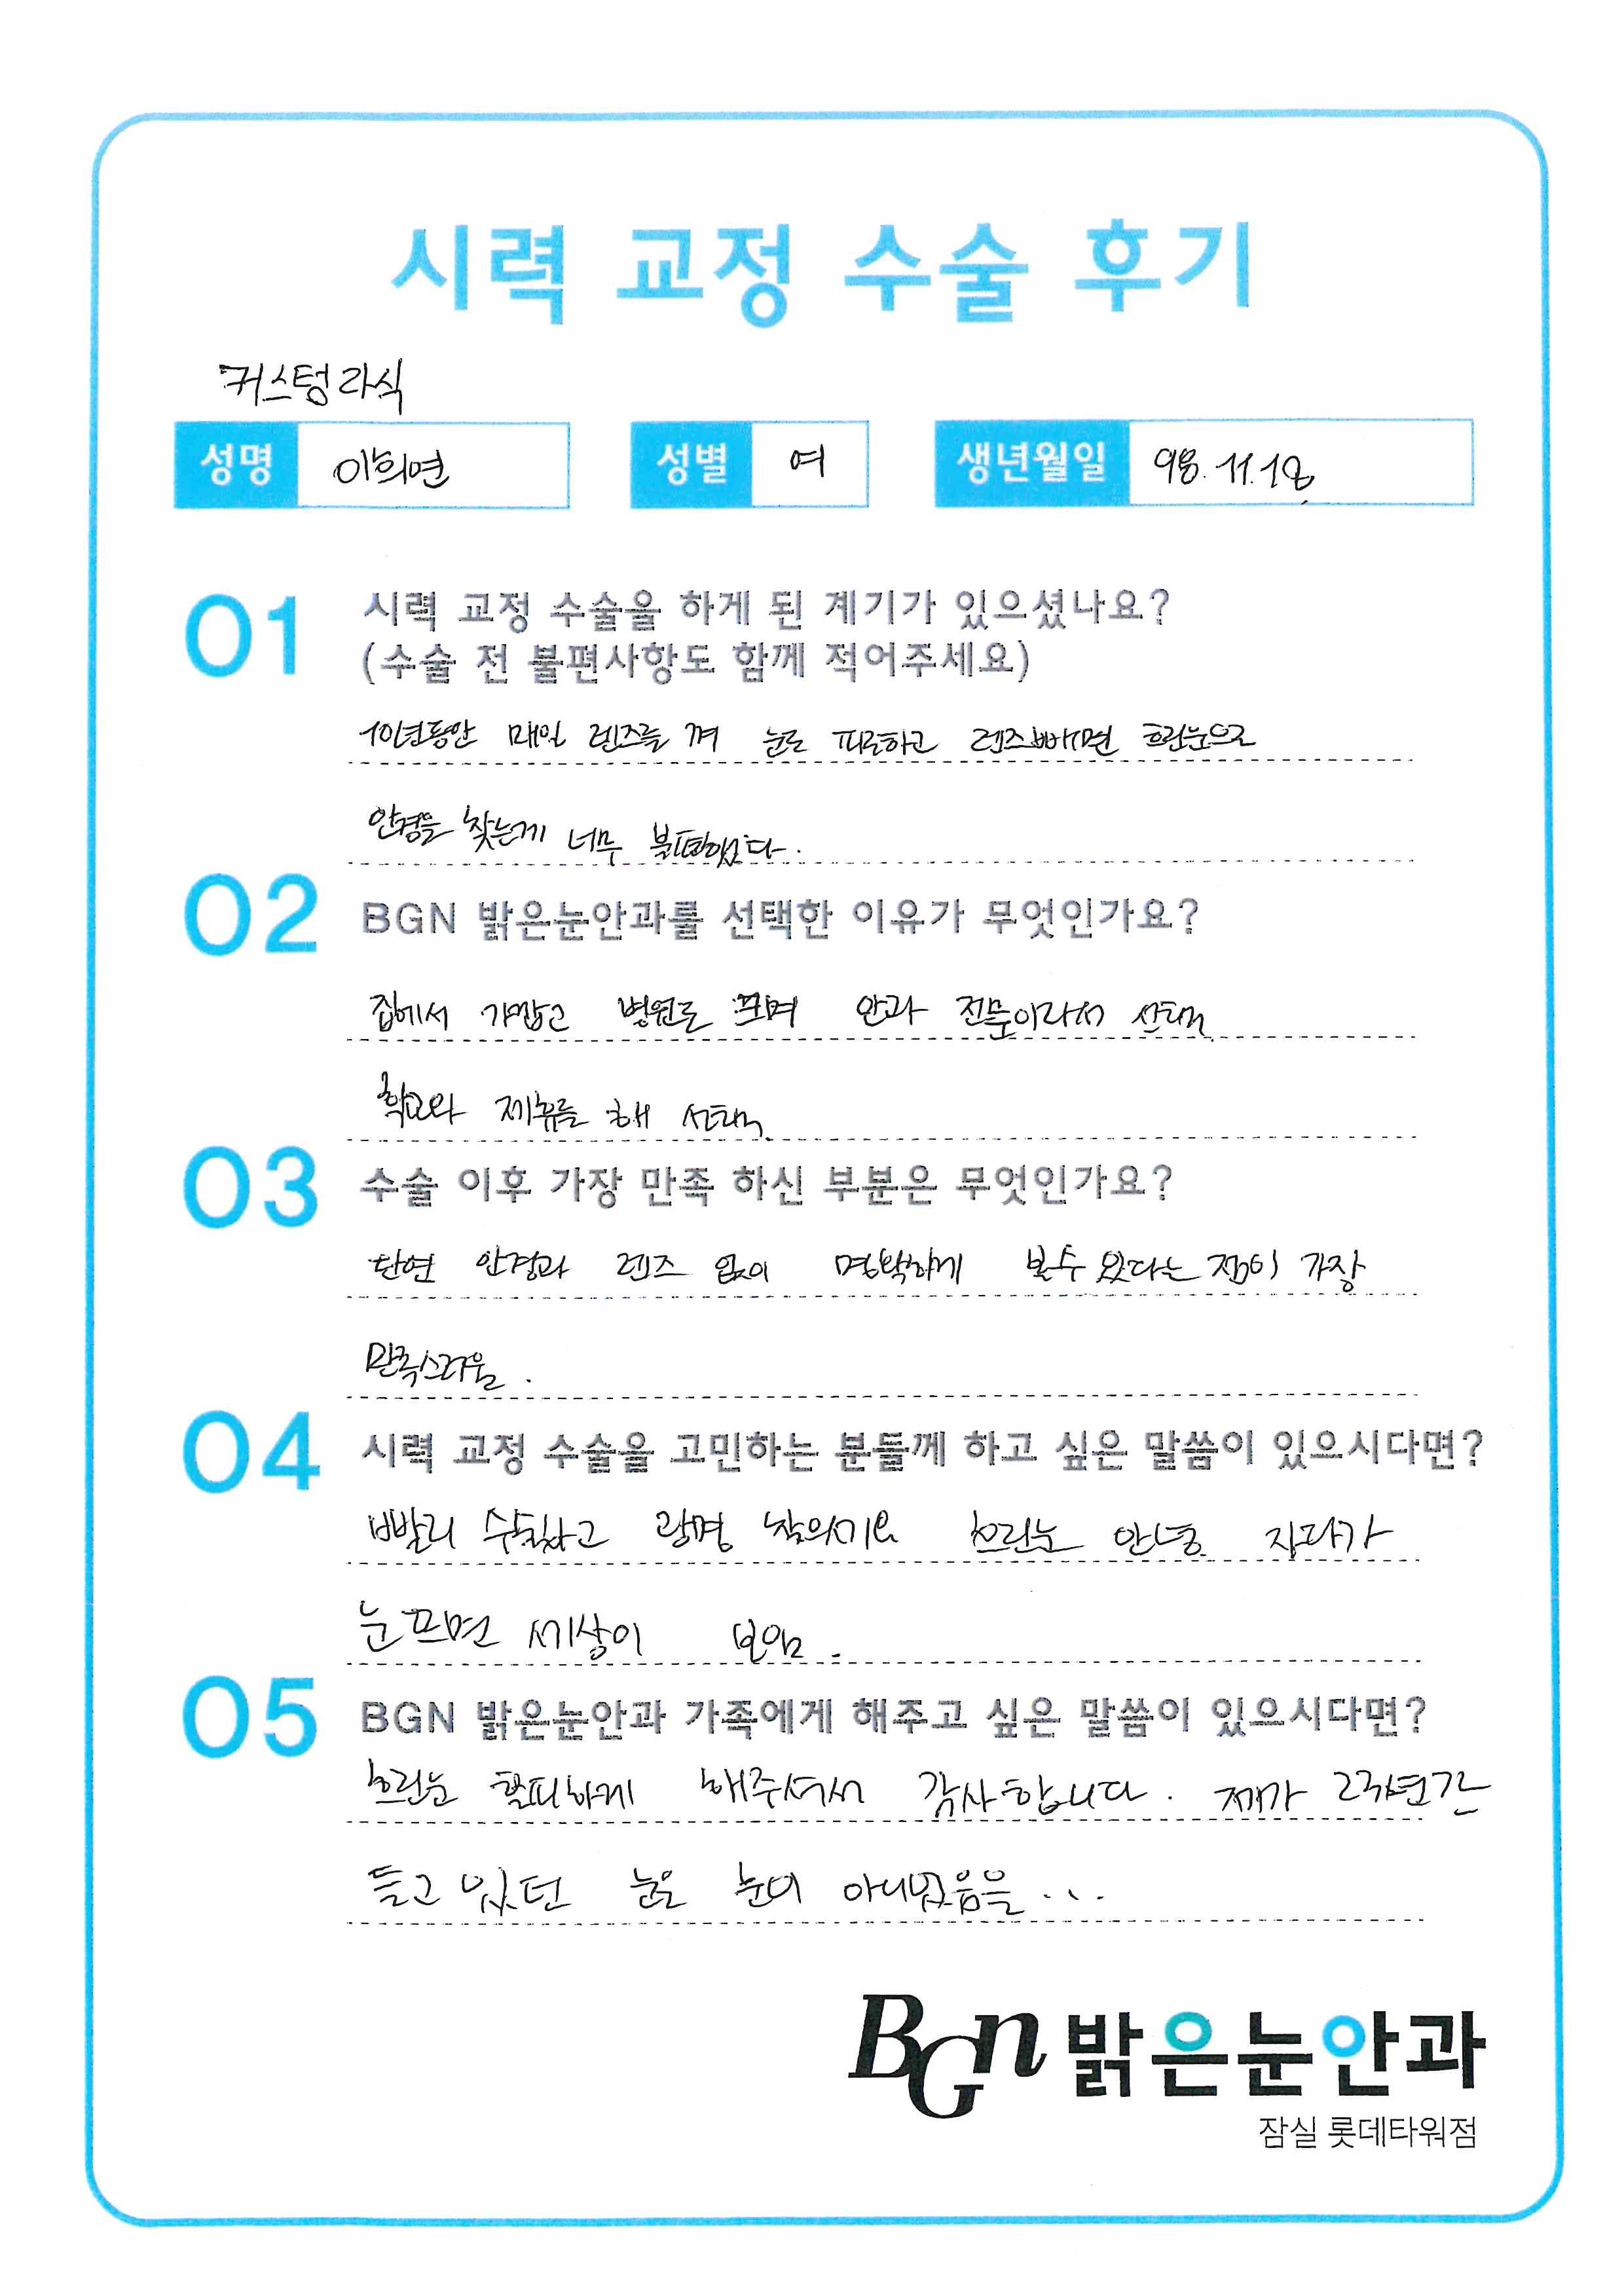 시력 교정 수술 후기
커스텀라식
성명 이희연 성별 여 생년월일 98.11.18
01 시력 교정 수술을 하게 된 계기가 있으셨나요?
(수술 전 불편사항도 함께 적어주세요)
10년동안 매일 렌즈를 껴 눈도 피로하고 렌즈빼면 흐린눈으로
안경을 찾는게 너무 불편했다.
02 BGN 밝은눈안과를 선택한 이유가 무엇인가요?
집에서 가깝고 병원도 크며 안과 전문이라서 선택
학교와 제휴를 해 선택
03 수술 이후 가장 만족 하신 부분은 무엇인가요?
단연 안경과 렌즈 없이 명확하게 볼수 있다는 점이 가장
만족스러움.
04 시력 교정 수술을 고민하는 분들께 하고 싶은 말씀이 있으시다면?
빨리 수술하고 광명 찾으세요 흐린눈 안녕 자다가
눈뜨면 세상이 보임.
05 BGN 밝은눈안과 가족에게 해주고 싶은 말씀이 있으시다면?
흐린눈 해피하게 해주셔서 감사합니다. 제가 23년간
들고 있던 눈은 눈이 아니었음을...
BGN 밝은눈안과
잠실 롯데타워점